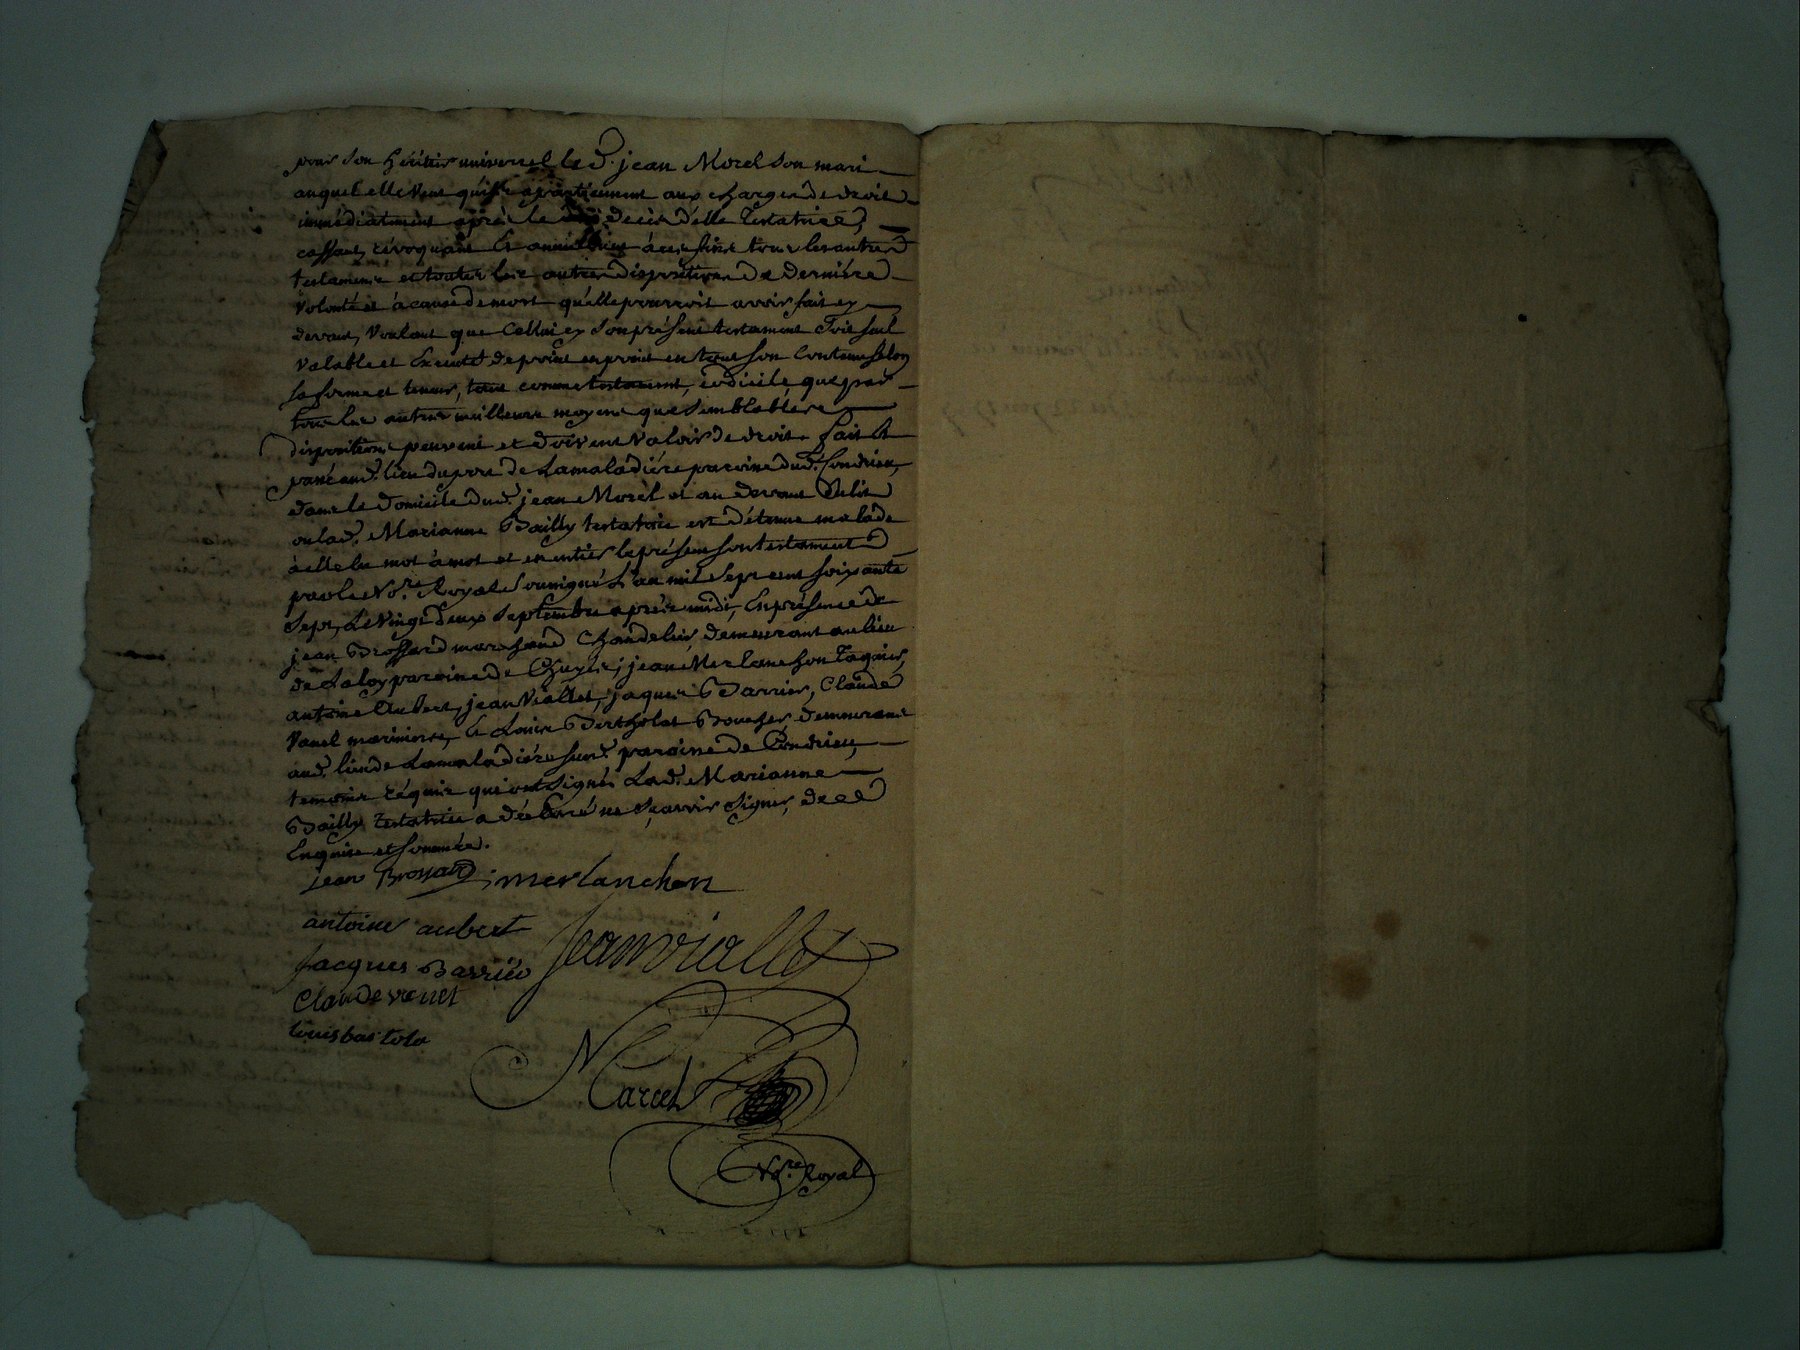 pour son héritier universel le d. jean Morel son mari
auquel elle veut qu'il apartiennent aux charges de droit
immédiatement apres le decès d'elle testatrice,
cassant, révoquant et annullant à ces fins tous les autres
testaments et toutes les autres dispositions de derniére
volonté et à cause de mort qu'elle pourroit avoir fait cy
devant, voulant que celluicy son présent testament soit seul
valable et executé de point en point en tout son contenu selon
sa forme et teneur, tant comme testament, codicile, que par
tous les autres meilleurs moyens que semblables
dispositions peuvent et doivent valoir de droit. fait et
passé aud. lieu du port de Lamaladiére paroisse dud. Condrieu,
dans le domicile dud. jean Morel et au devant du lit
ou lad. Marianne Bailly testatrice est détenue malade
à elle lu mot à mot et en entier le présent son testament
par le No.re Royal soussigné L'an mil sept cent soixante
sept, le vingt deux septembre après midi, En présence de
jean Brossard marchand Chandelier, demeurant au lieu
de Laloy paroisse de Chuyer; jean Merlanchon
antoine Aubert, jean Viallet, jaques Barrier, Claude
Vanel mariniers, et Louis Bertholat Boucher demeurant
aud. lieu de Lamaladiére susd. paroisse de Condrieu,
temoins réquis qui ont signé. Lad. Marianne
Bailly testatrice a déclaré ne sçavoir signer, de ce
Enquise et sommée.
jean Brossard. merlanchon
antoine aubert jean viallet
jacques Barrier
Claude venet
louis bartola
Marcel
No.re Royal